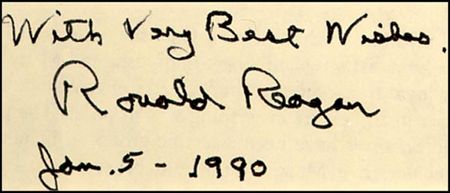 With Very Best Wishes.
Ronald Reagan
Jan. 5 - 1990